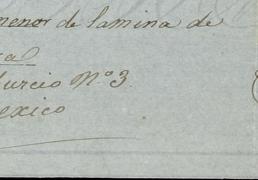 menor de lamina de
ca
urcio Nº 3.
exico